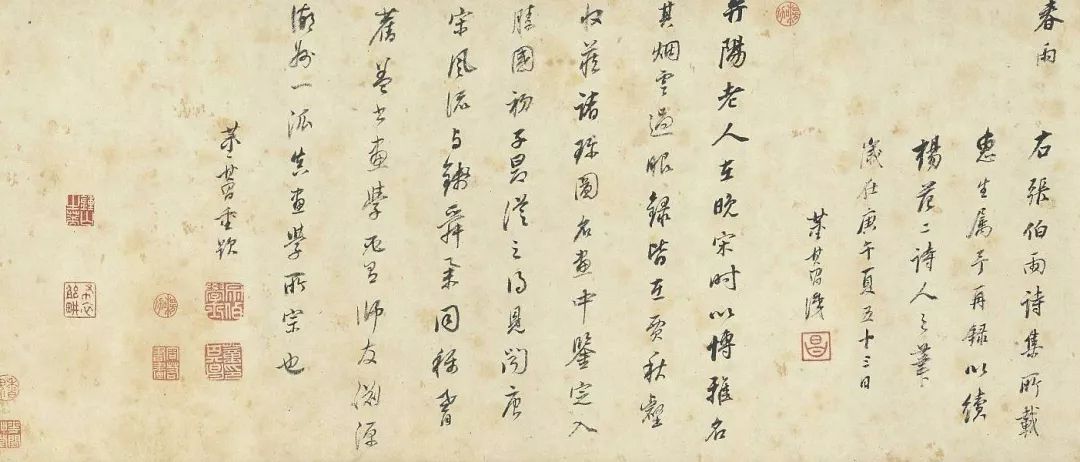 春雨
右張伯雨詩集所載
惠生屬予再錄以續
楊范二詩人之筆
歲在庚午夏五十三日
董其昌識
昌
弁陽老人在晚宋時以博雅名
其烟雲過眼錄皆在賈秋壑
收藏諸珍圖名畫中鑒定入
勝國初子昂從之得見聞唐
宋風流與錢舜舉同稱耆
舊蓋書畫學必有師友淵源
湖州一派真畫學所宗也
董其昌重題